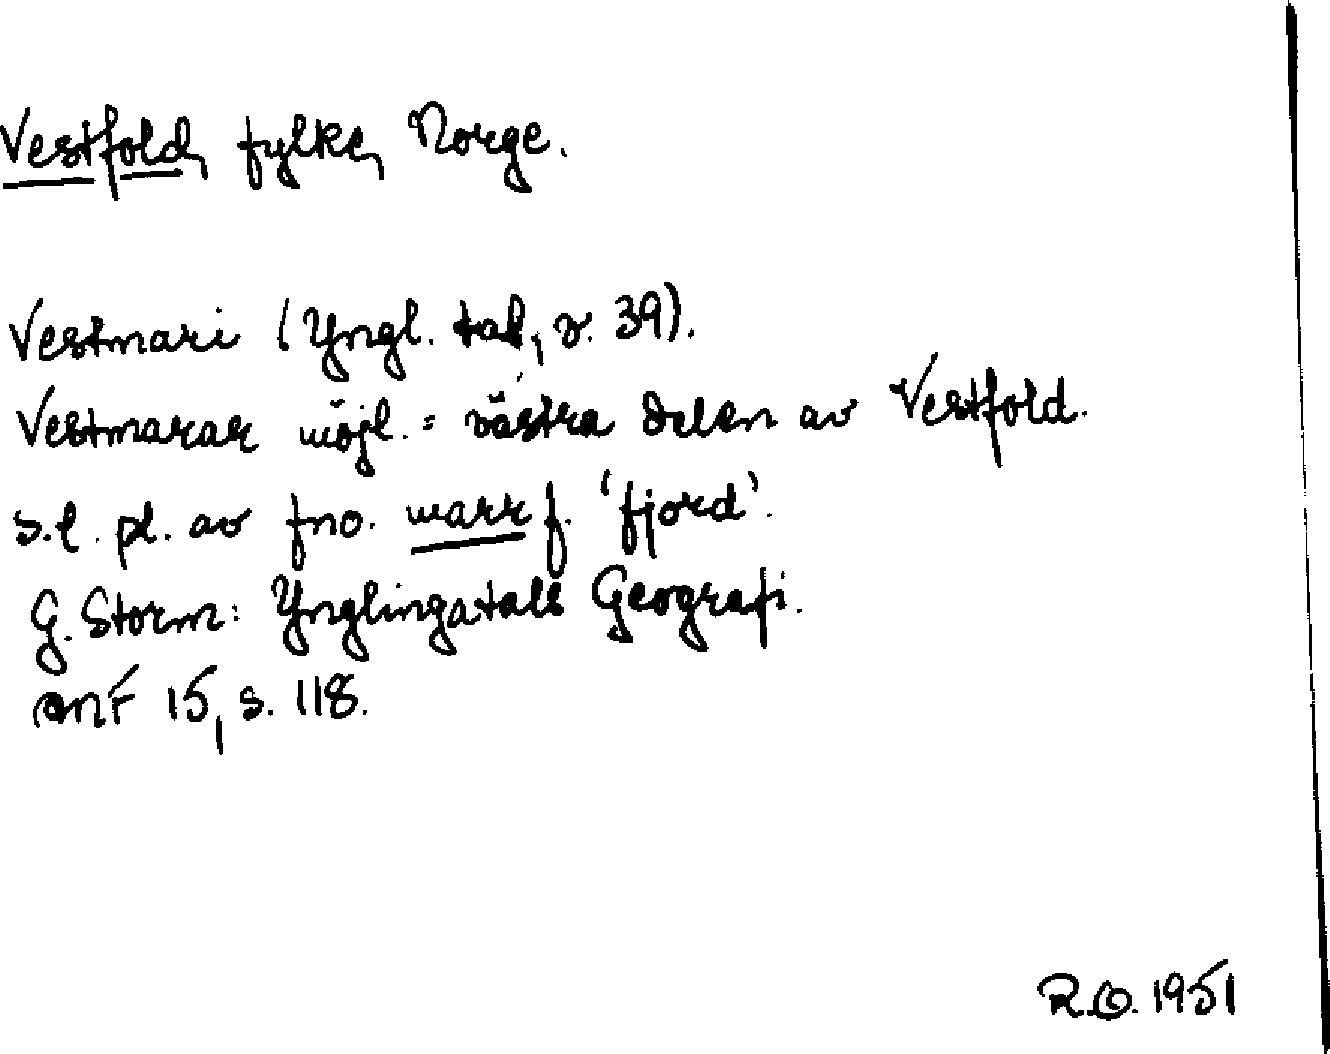 Vestfold, fylke, Norge.
Vestmari (Yngl. tal, v. 39).
Vestmarar möjl. = västra delen av Vestfold.
s.l. pl. av fno. marr f. 'fjord'.
G. Storm: Ynglingatals Geografi.
ANF 15, s. 118.
R.O. 1951